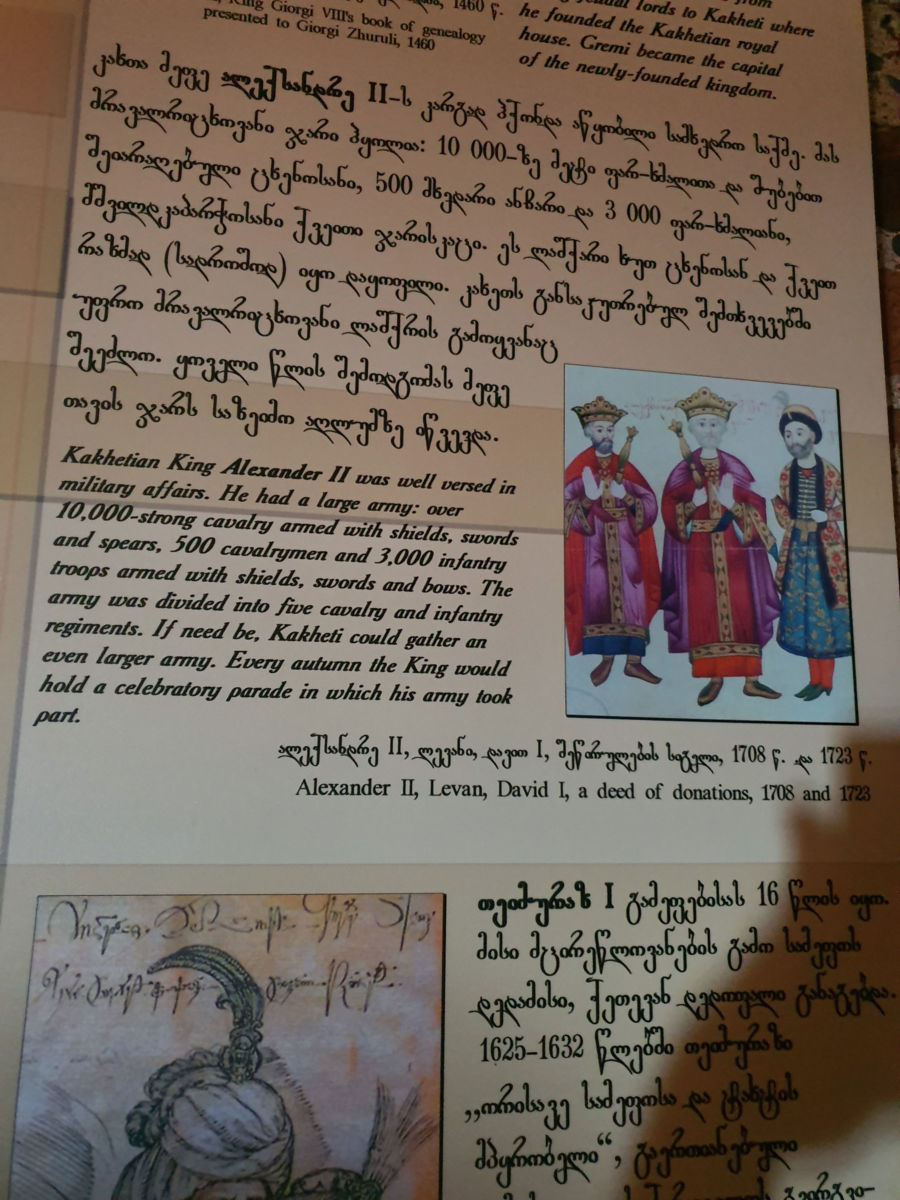 1460 წ.
King Giorgi VIII's book of genealogy
presented to Giorgi Zhuruli, 1460
from
feudal lords to Kakheti where
he founded the Kakhetian royal
house. Gremi became the capital
of the newly-founded kingdom.
კახთა მეფე ალექსანდრე II-ს კარგად ჰქონდა აწყობილი სამხედრო საქმე. მას
მრავალრიცხოვანი ჯარი ჰყოლია: 10 000-ზე მეტი ფარ-ხმალითა და შუბებით
შეიარაღებული ცხენოსანი, 500 მხედარი ანჩარი და 3 000 ფარ-ხმალიანი,
მშვილდკაპარჭოსანი ქვეითი ჯარისკაცი. ეს ლაშქარი ხუთ ცხენოსან და ქვეით
რაზმად (სადროშოდ) იყო დაყოფილი. კახეთს განსაკუთრებულ შემთხვევებში
უფრო მრავალრიცხოვანი ლაშქრის გამოყვანაც
შეეძლო. ყოველი წლის შემოდგომას მეფე
თავის ჯარს საზეიმო აღლუმზე იწვევდა.
Kakhetian King Alexander II was well versed in
military affairs. He had a large army: over
10,000-strong cavalry armed with shields, swords
and spears, 500 cavalrymen and 3,000 infantry
troops armed with shields, swords and bows. The
army was divided into five cavalry and infantry
regiments. If need be, Kakheti could gather an
even larger army. Every autumn the King would
hold a celebratory parade in which his army took
part.
ალექსანდრე II, ლევანი, დავით I, შეწირულების სიგელი, 1708 წ. და 1723 წ.
Alexander II, Levan, David I, a deed of donations, 1708 and 1723
თეიმურაზ I გამეფებისას 16 წლის იყო.
მისი მცირეწლოვანების გამო სამეფოს
დედამისი, ქეთევან დედოფალი განაგებდა.
1625-1632 წლებში თეიმურაზი
„ორისავე სამეფოსა და ტახტის
მპყრობელი“, გაერთიანებული